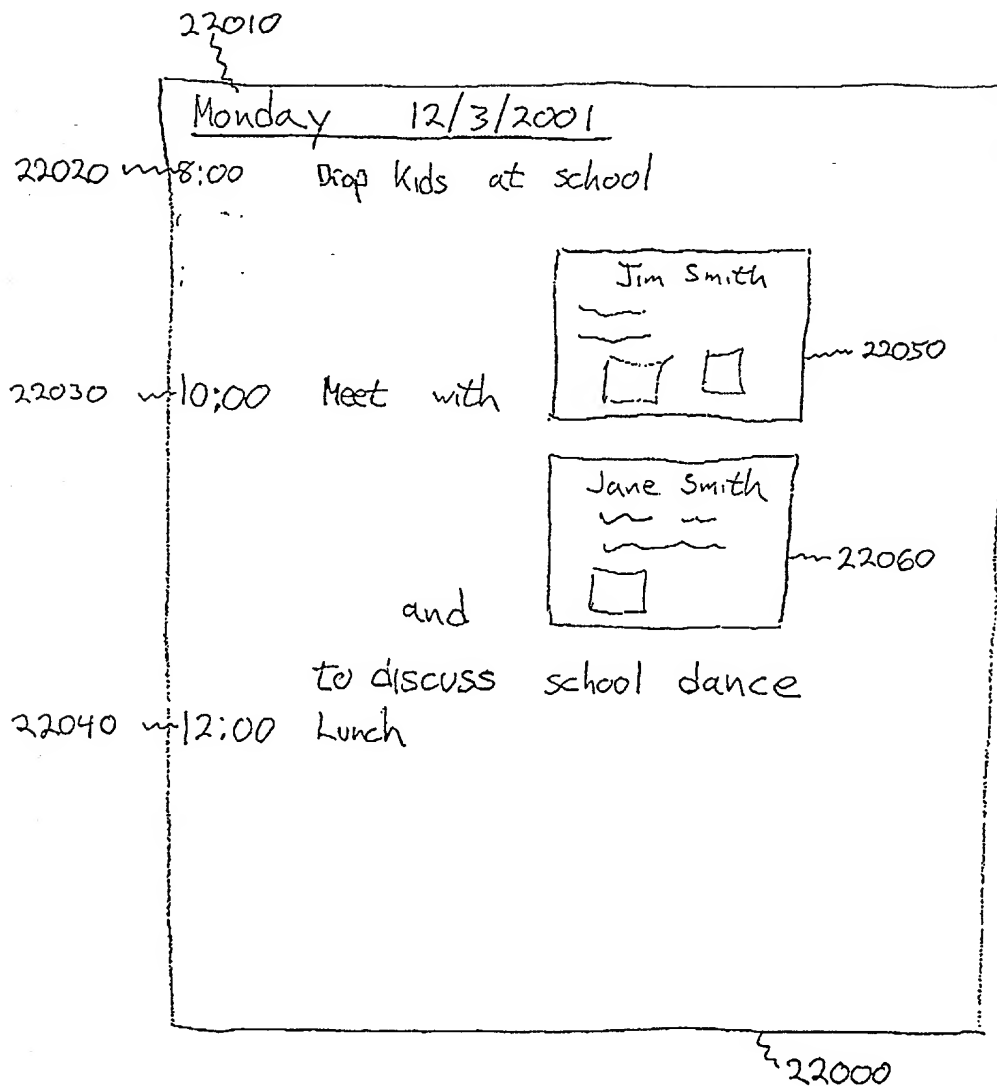 22010
Monday 12/3/2001
22020 8:00 Drop Kids at school
Jim Smith
22050
22030 10:00 Meet with
Jane Smith
22060
and
to discuss school dance
22040 12:00 Lunch
22000